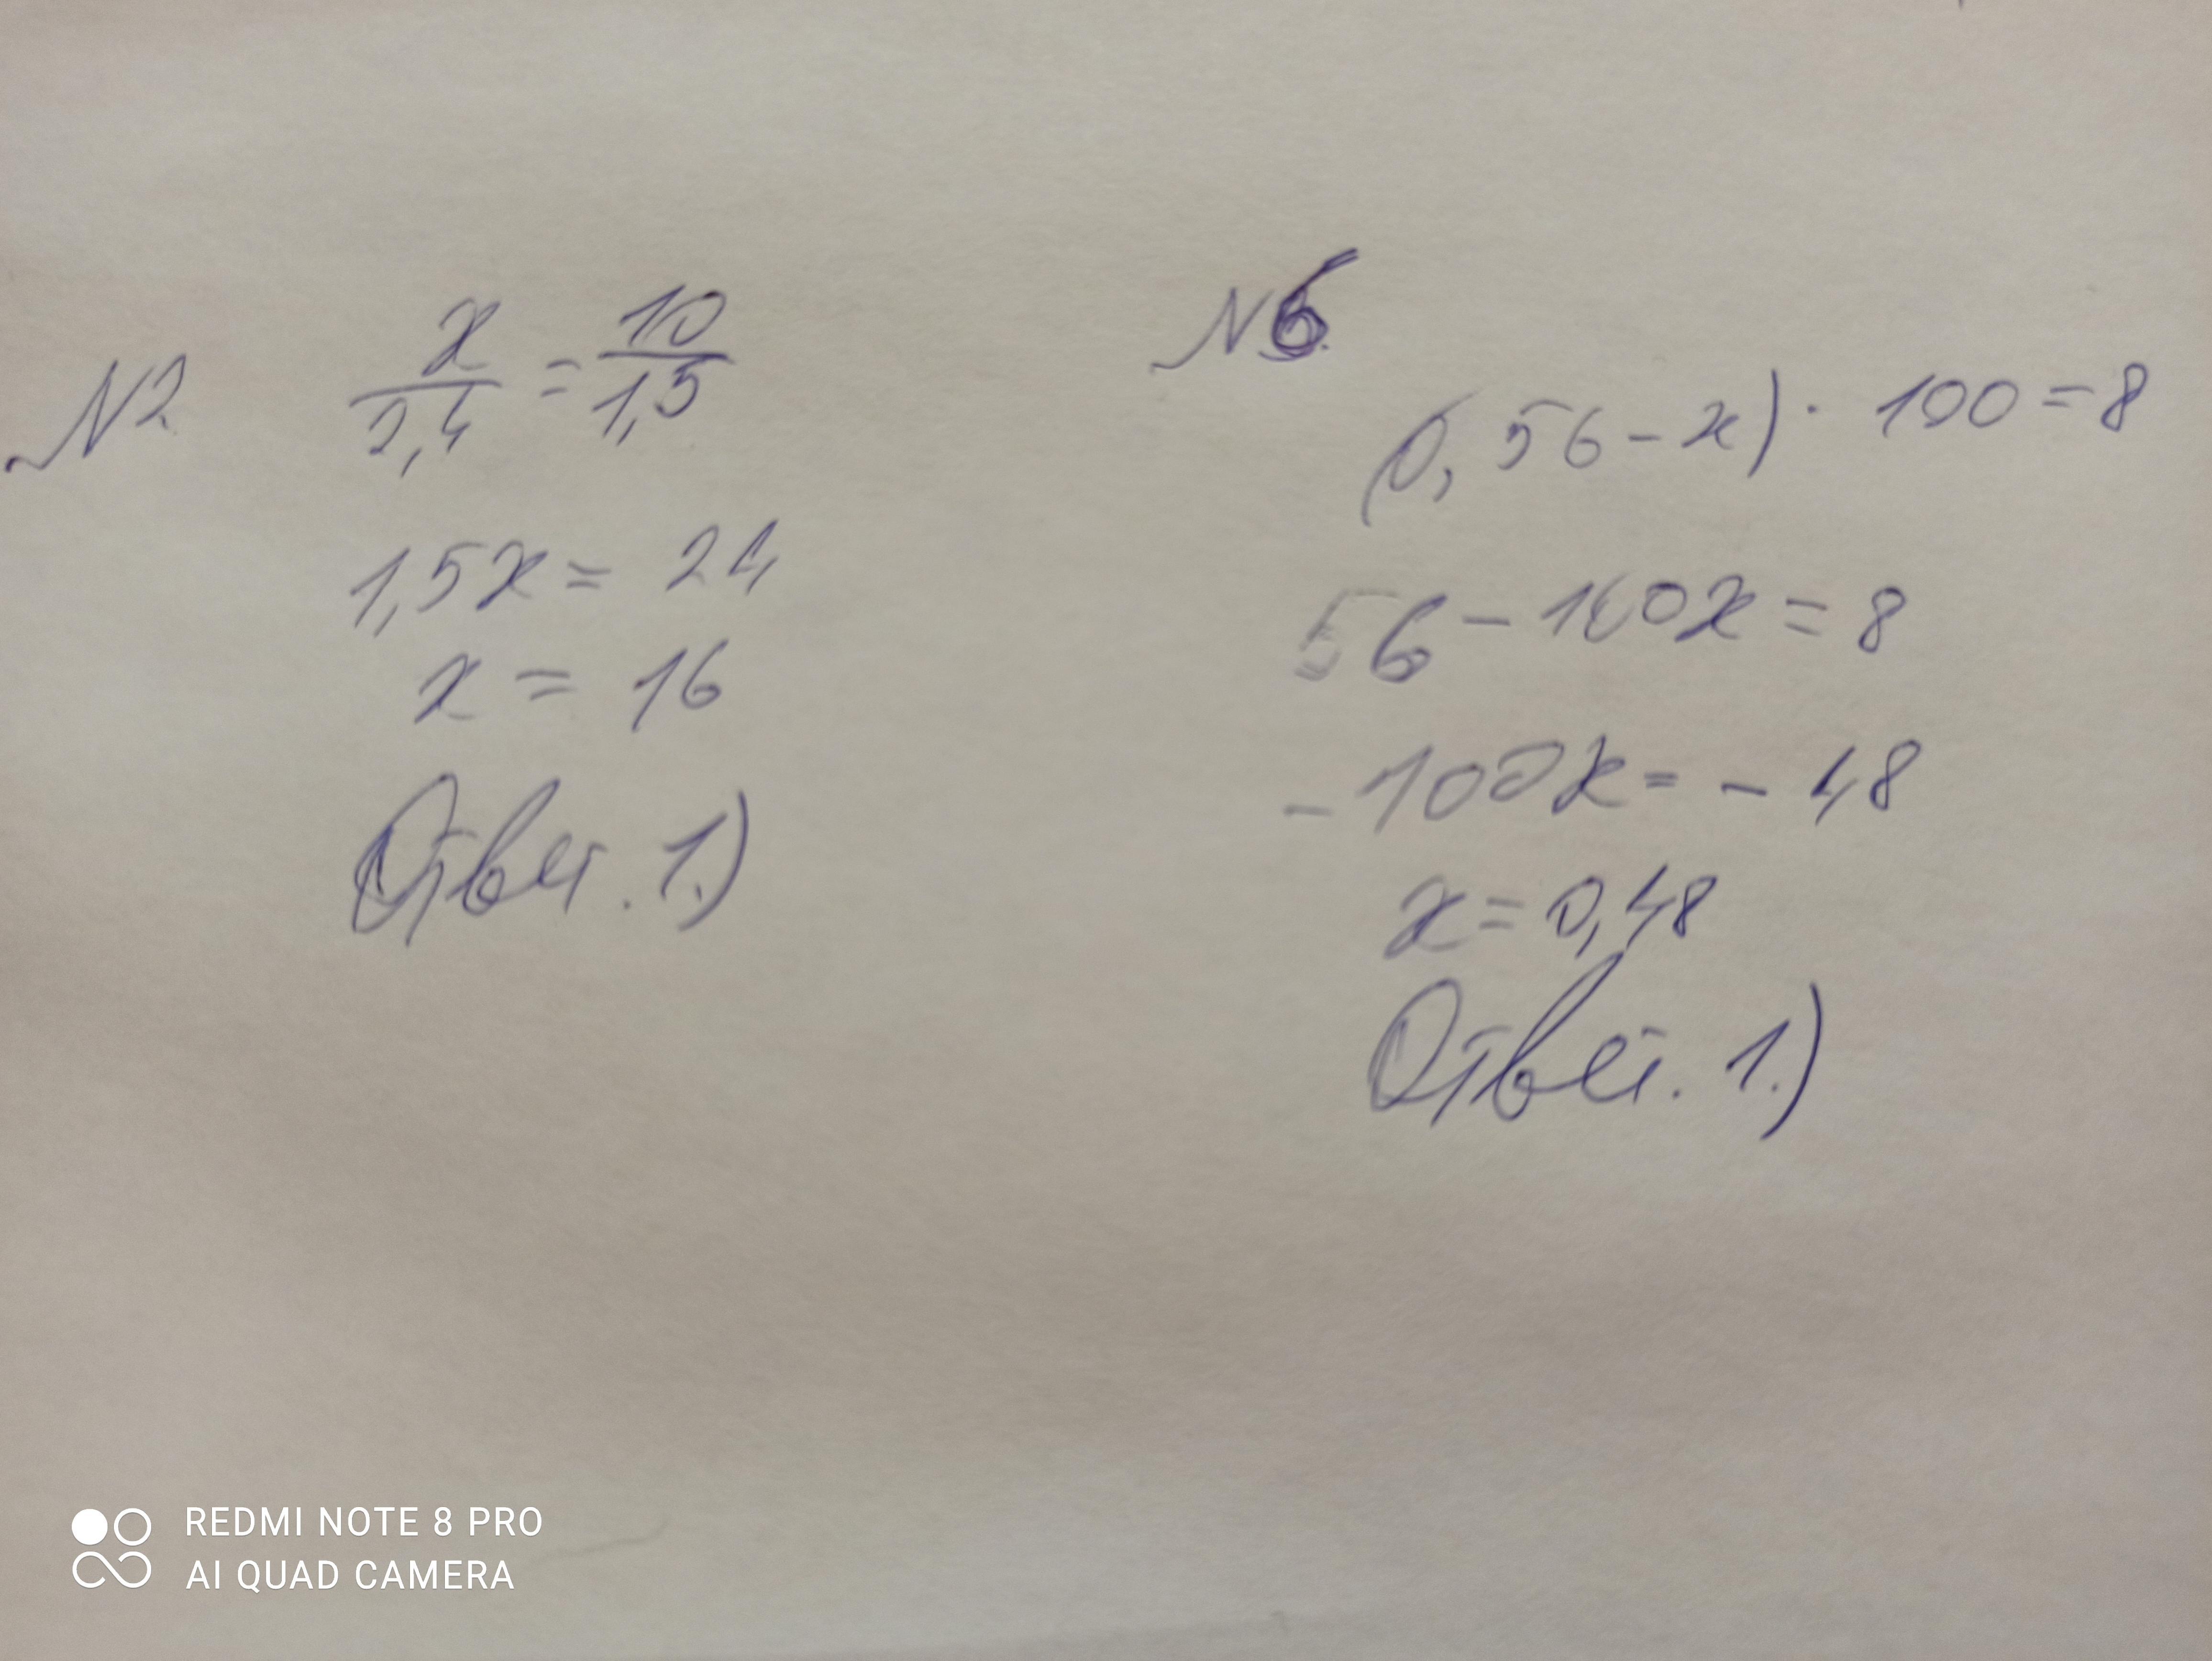 N2
x/2,4 = 10/1,5
1,5x = 24
x = 16
Ответ. 1.)
N6
(0,56 - x) · 100 = 8
56 - 100x = 8
- 100x = - 48
x = 0,48
Ответ. 1.)
REDMI NOTE 8 PRO
AI QUAD CAMERA